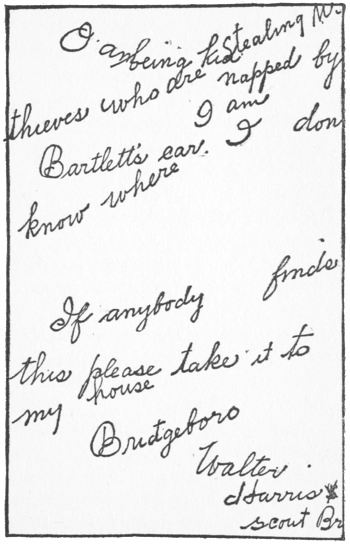 I am being kidnapped by
thieves who are stealing Mr.
Bartlett's car. I am
I don
know where
If anybody finds
this please take it to
my house
Bridgeboro
Walter
Harris
scout Br